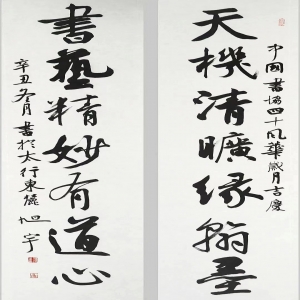 天機清曠緣翰墨
中國書協四十風華歲月吉慶
書藝精妙有道心
辛丑冬月書於太行東麓旭宇